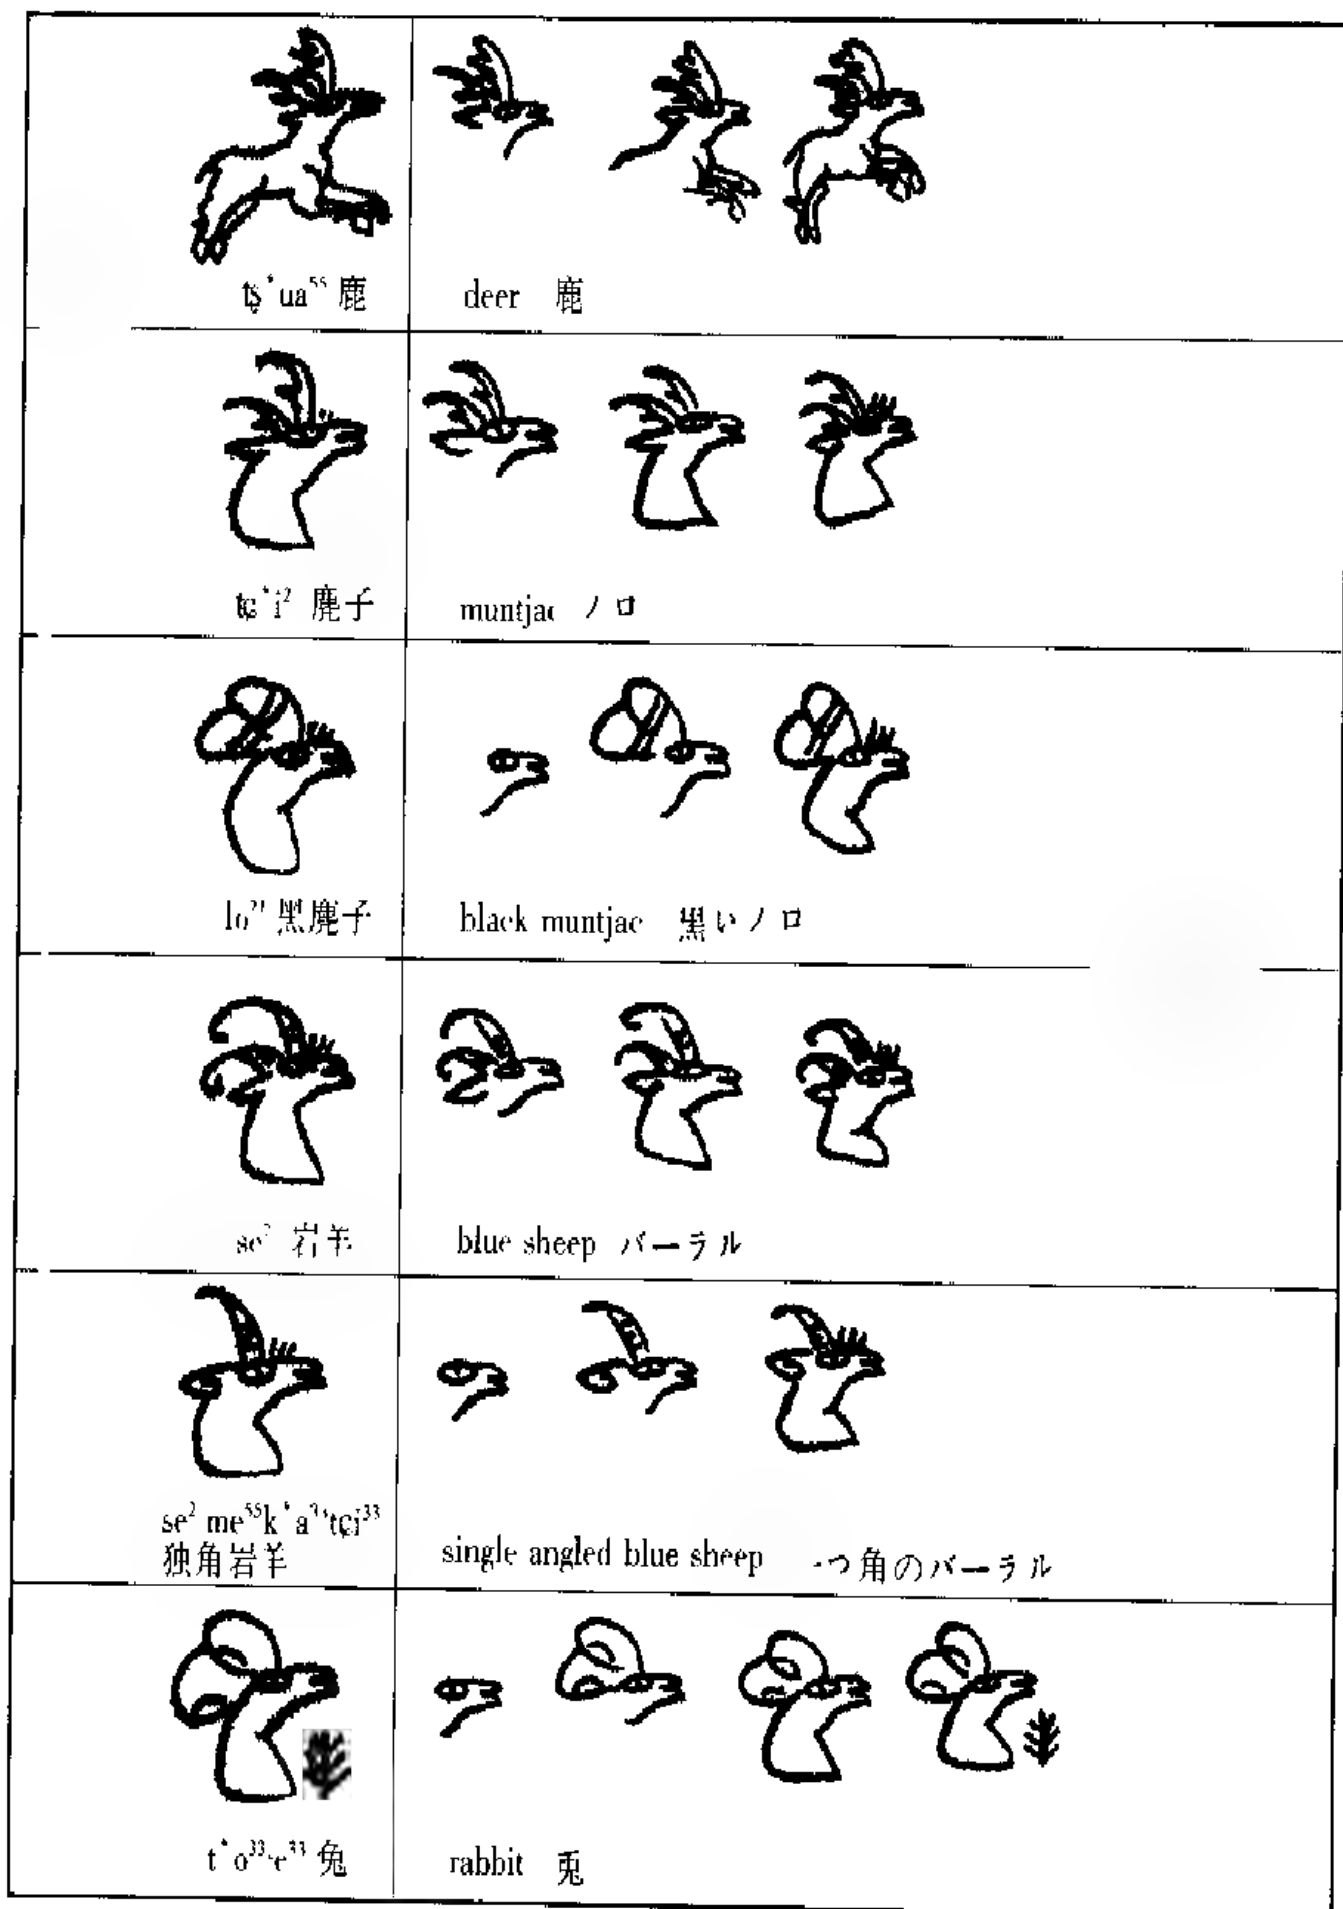 tʂ‘ua⁵⁵ 鹿
deer 鹿
tɕ‘i² 麂子
muntjac ノロ
黑麂子
black muntjac 黒いノロ
se² 岩羊
blue sheep バーラル
se² me⁵⁵k‘a³³tɕi³³
独角岩羊
single angled blue sheep 一つ角のバーラル
兔
rabbit 兎